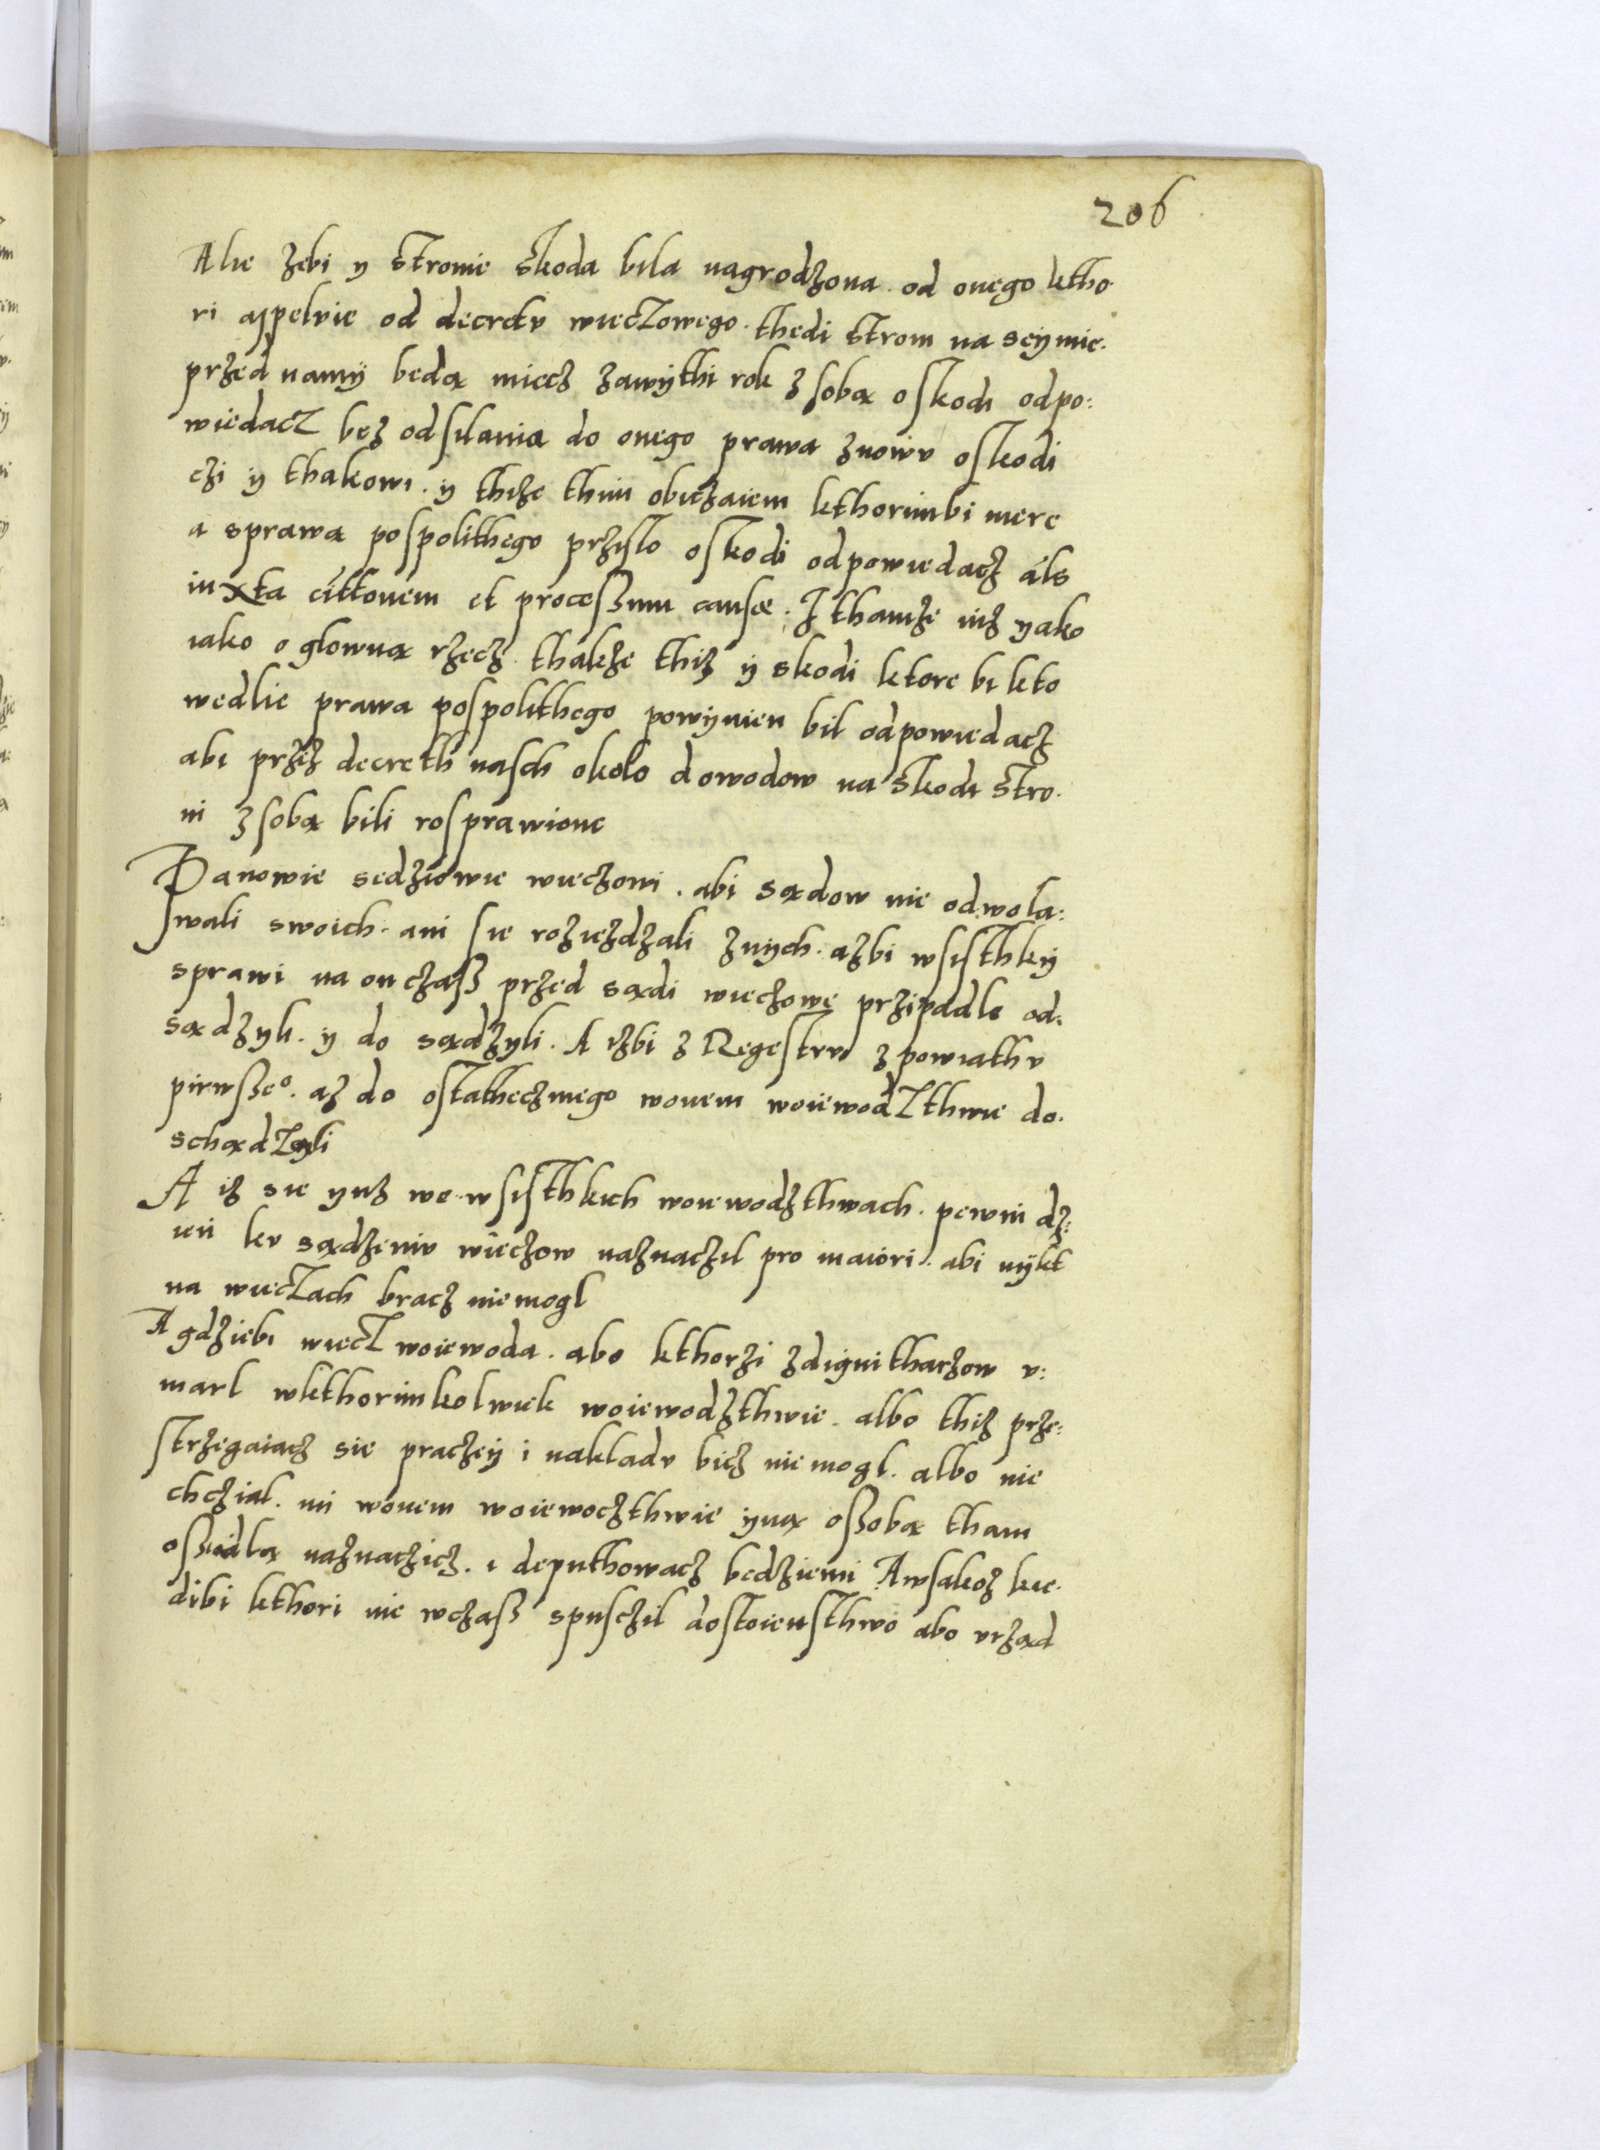 206
Alie zebi y stronie skoda bila nagrodzona. od onego ktho
ri appeluie od decretu wieczowego. thedi stroni na seymie.
przed namÿ beda miecz zawÿthi rok z soba o skodi odpo:
wiedacz bez odsilania do onego prawa znowu o skodi
czi ÿ thakowi. y thize thim obiczaiem kthorimbi mere
a sprawa pospolithego przislo o skodi odpowiedacz als
iuxta cittonem et processum causæ. I thamze iuz yako
iako o glowna rzecz. thakze thiz ÿ skodi ktore bi kto
wedlie prawa pospolithego powÿnien bil odpowiedacz
abi przez decreth nasch okolo dowodow na skodi stro.
ni z soba bili rosprawione
Panowie sedziowie wieczowi. abi sądow nie odwola:
wali swoich. ani sie rozieżdzali znych. azbi wsisthkÿ
sprawi na on czass przed sądi wieczowe przipadle od.
sądzyli. y do sądzyli. A izbi z Regestru z powiathu
pirwsze°. az do ostathecznego wonem woiewodzthwie do.
schądzyli
A iz sie yuz we wsisthkich woiewodzthwach. pewni dz:
ień ku sądzeniu wieczow naznaczil pro maiori. abi nÿkt
na wieczach bracz niemogl
A gdziebi wiecz woiewoda. abo kthorzi z dignitharzow v:
marl wkthorimkolwiek woiewodzthwie. albo thiz prze:
strzegaiacz sie praczeÿ i nakladu bicz niemogl. albo nie
chczial. mi wonem woiewoczthwie ÿną ossobą tham
ossiadlą naznaczicz. i deputhowacz bedziemi A wsakoz kie.
dibi kthori nie wczass spusczil dostoiensthwo abo vrząd